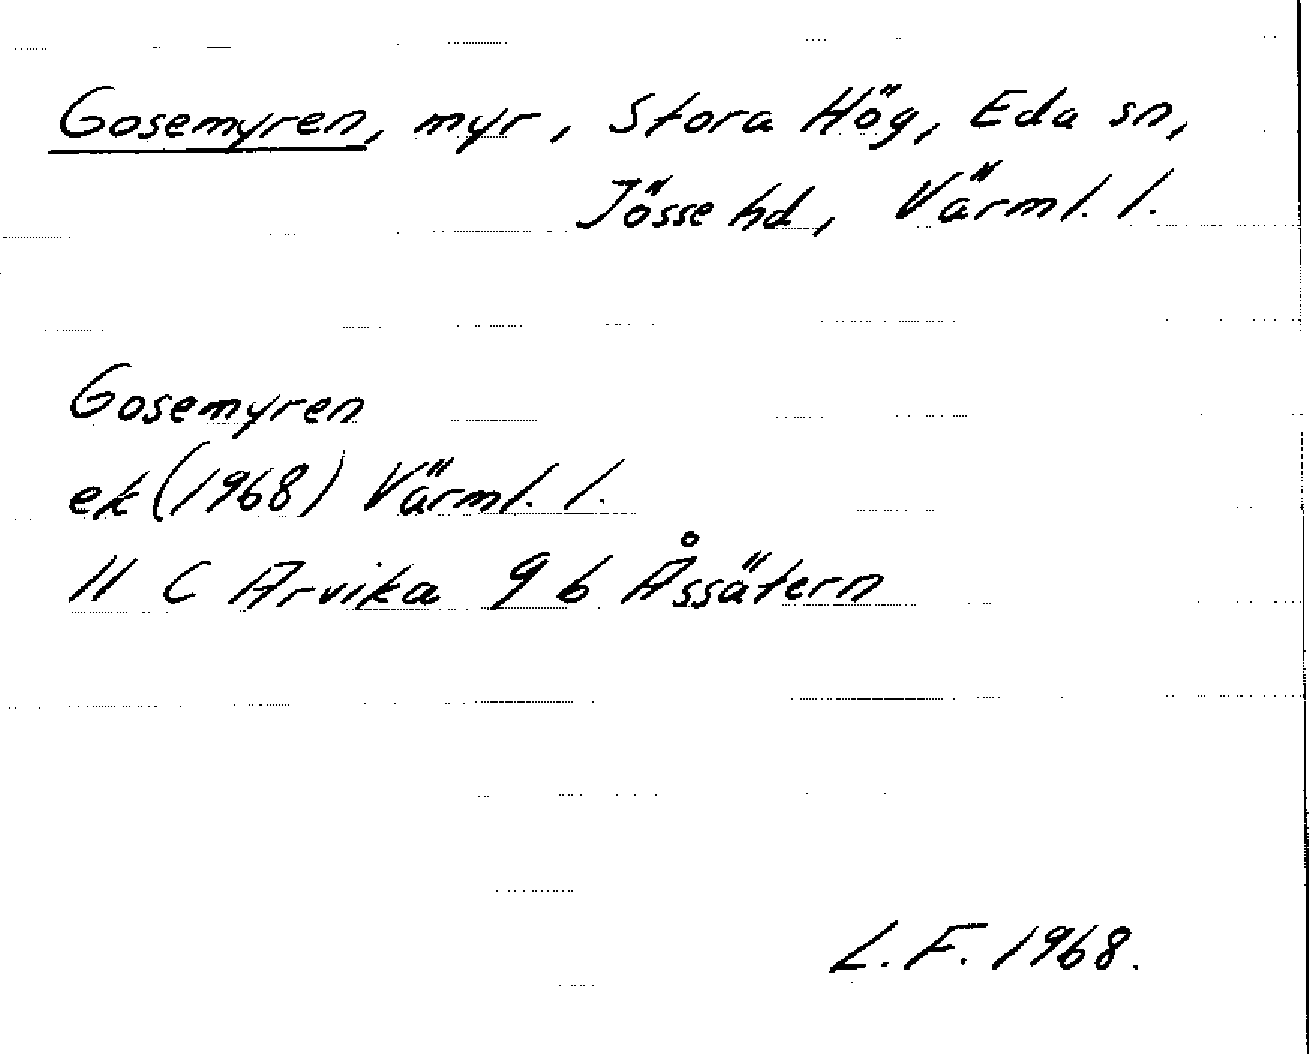 Gosemyren, myr, Stora Hög, Eda sn,
Jösse hd, Värml. l.
Gosemyren
ek (1968) Värml. l.
11 C Arvika 9 b Åssätern
L. F. 1968.